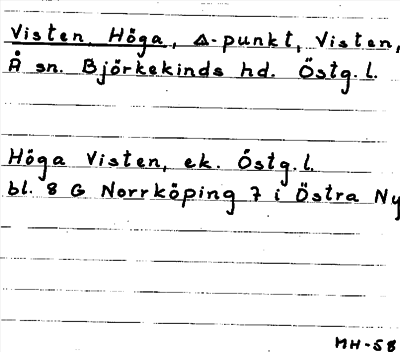 Visten, Höga, Δ-punkt, Visten,
Å sn. Björkekinds hd. Östg.l.
Höga Visten, ek. Östg.l.
bl. 8 G Norrköping 7 i Östra Ny
MH-58